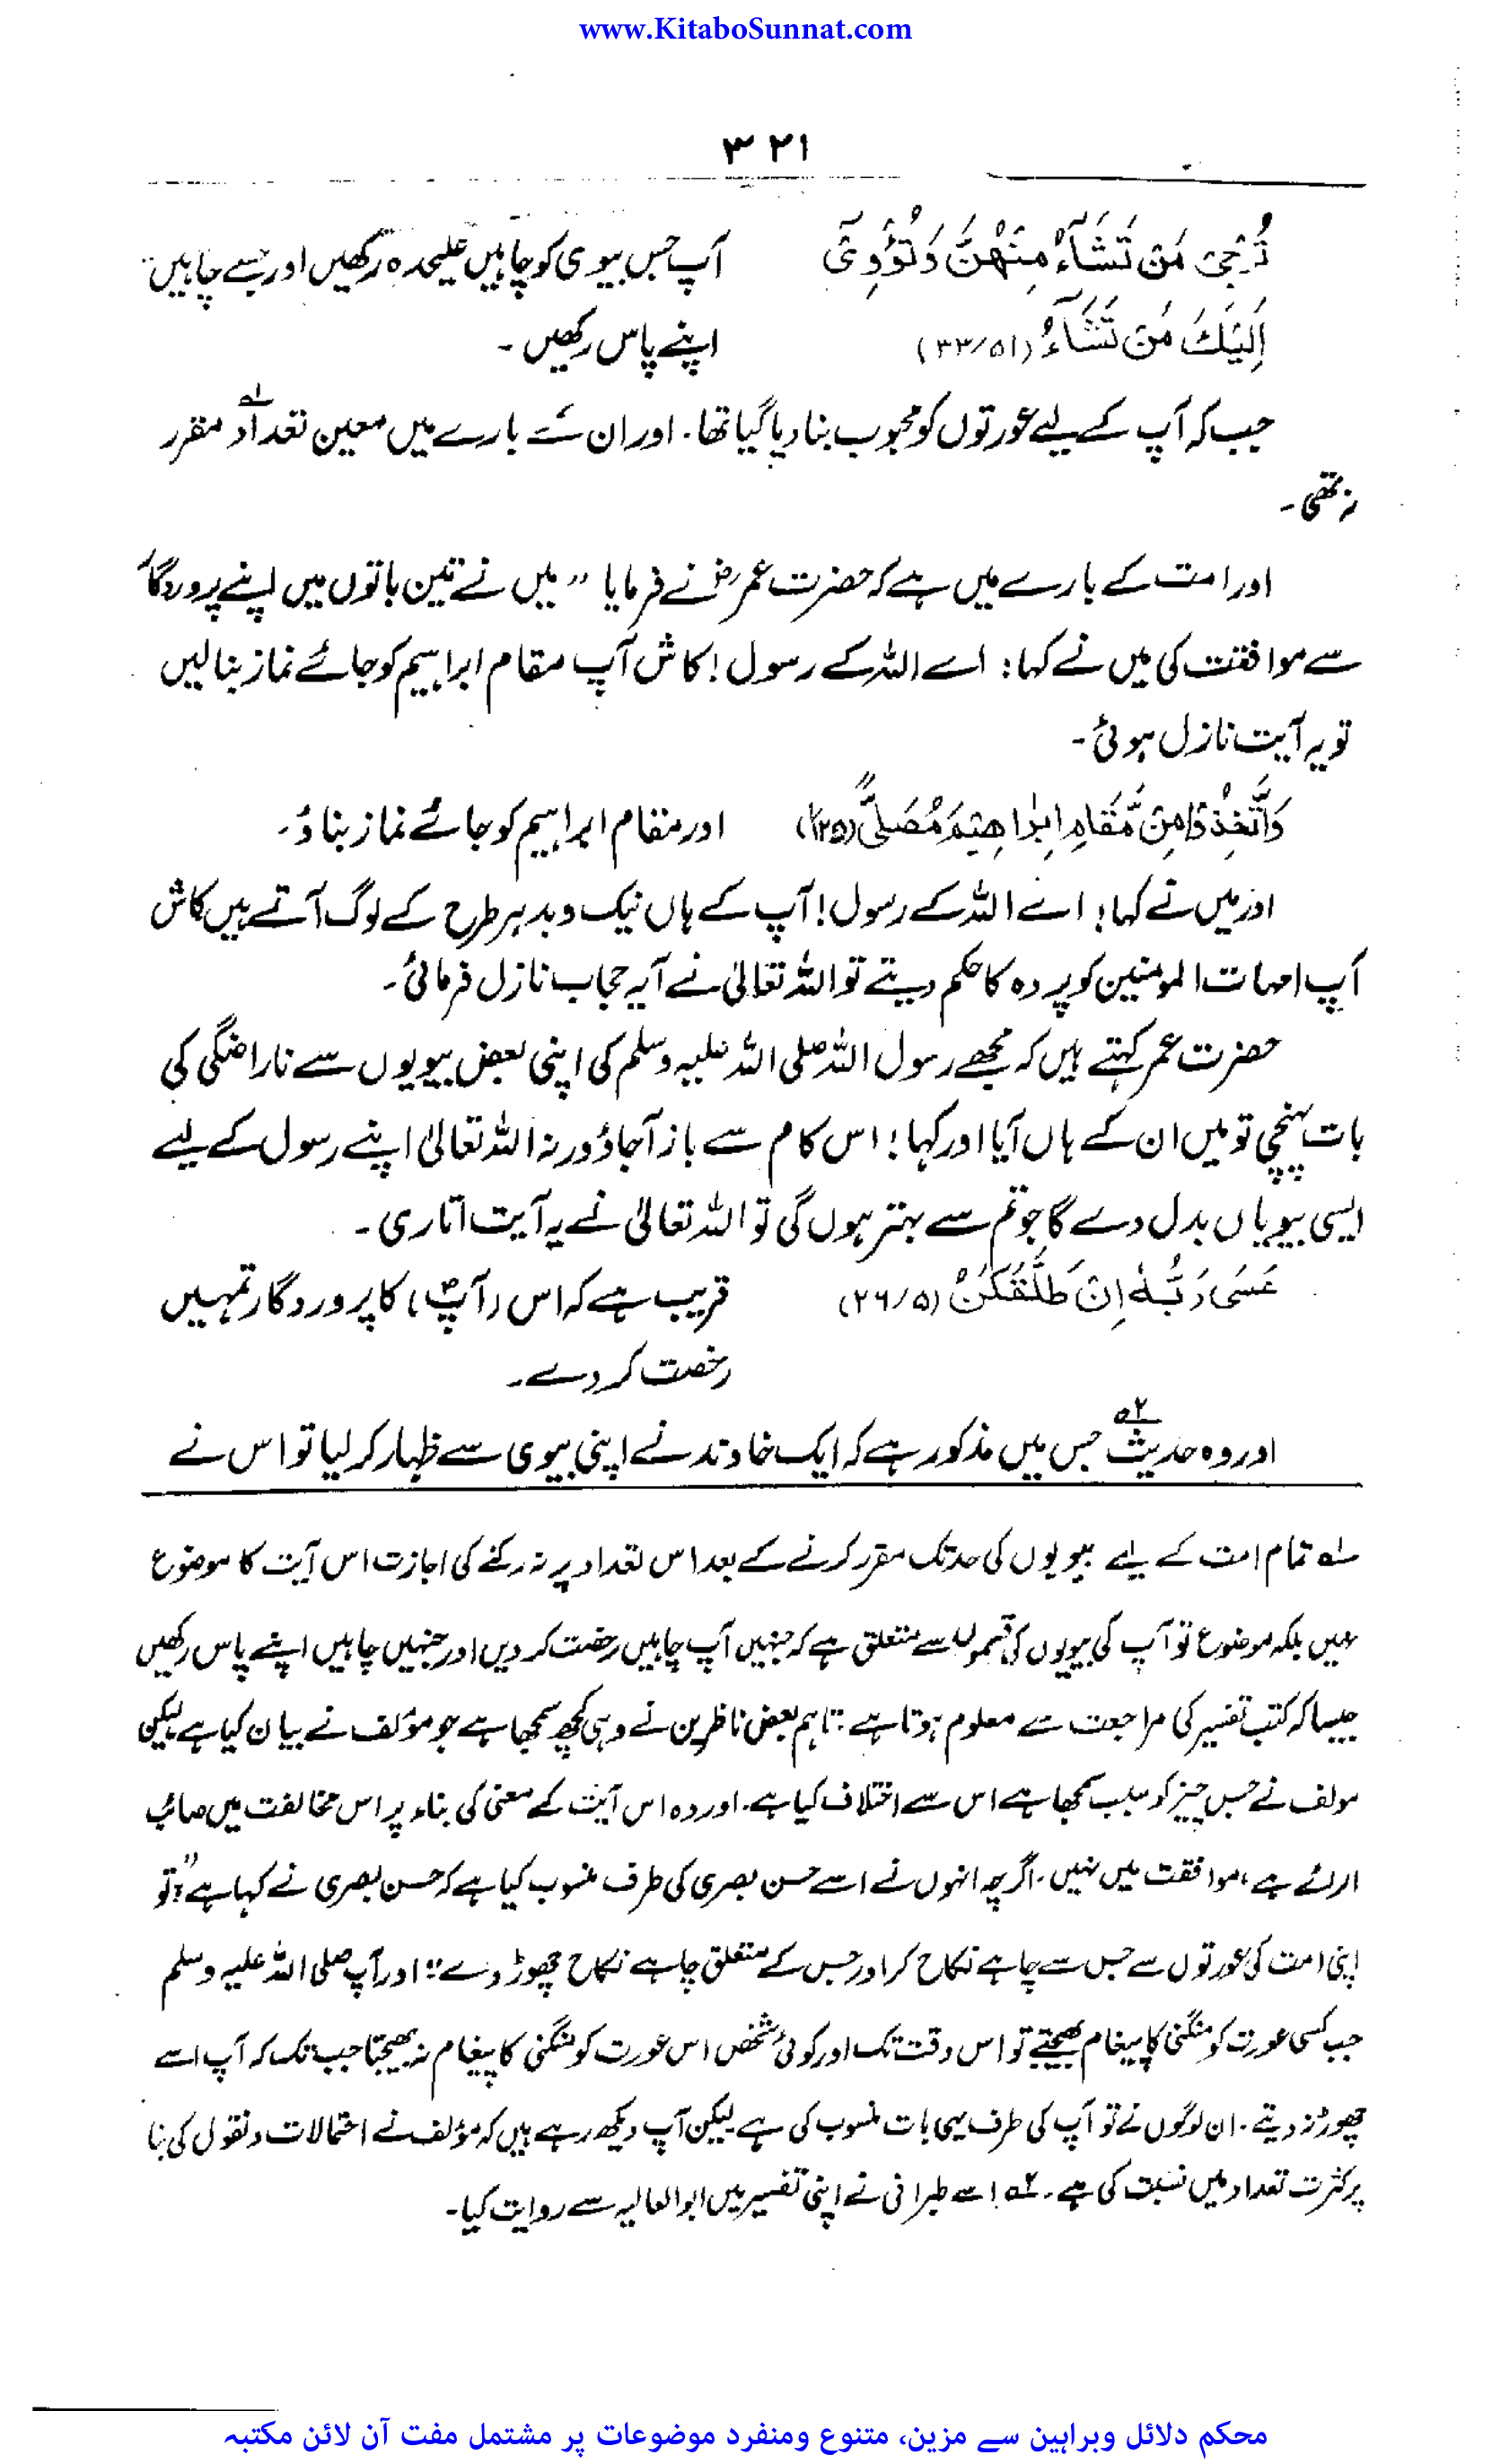 www.KitaboSunnat.com
۳۲۱
تُرْجِیْ مَنْ تَشَآءُ مِنْهُنَّ وَتُؤْوِیْٓ آپ جس بیوی کو چاہیں علیحدہ رکھیں اور جسے چاہیں
اِلَیْكَ مَنْ تَشَآءُ (۳۳/۵۱) اپنے پاس رکھیں ۔
جب کہ آپ کے لیے عورتوں کو محبوب بنا دیا گیا تھا۔ اور ان کے بارے میں معین تعداد لہ مقرر
نہ تھی ۔
اور امت کے بارے میں ہے کہ حضرت عمرؓ نے فرمایا ”میں نے تین باتوں میں اپنے پروردگار
سے موافقت کی میں نے کہا : اے اللہ کے رسول ! کاش آپ مقام ابراہیم کو جائے نماز بنا لیں
تو یہ آیت نازل ہوئی ۔
وَاتَّخِذُوْا مِنْ مَّقَامِ اِبْرٰاهِیْمَ مُصَلًّی (۱۲۵) اور مقام ابراہیم کو جائے نماز بناؤ ۔
اور میں نے کہا ! اے اللہ کے رسول ! آپ کے ہاں نیک و بد ہر طرح کے لوگ آتے ہیں کاش
آپ امہات المومنین کو پردہ کا حکم دیتے تو اللہ تعالیٰ نے آیہ حجاب نازل فرمائی ۔
حضرت عمر کہتے ہیں کہ مجھے رسول اللہ صلی اللہ علیہ وسلم کی اپنی بعض بیویوں سے ناراضگی کی
بات پہنچی تو میں ان کے ہاں آیا اور کہا ! اس کام سے باز آجاؤ ورنہ اللہ تعالیٰ اپنے رسول کے لیے
ایسی بیویاں بدل دے گا جو تم سے بہتر ہوں گی تو اللہ تعالیٰ نے یہ آیت اتاری ۔
عَسٰی رَبُّهٗ اِنْ طَلَّقَكُنَّ (۲۶/۵) قریب ہے کہ اس (آپؐ) کا پروردگار تمہیں
رخصت کر دے ۔
اور وہ حدیث ۲ہ جس میں مذکور ہے کہ ایک خاوند نے اپنی بیوی سے ظہار کر لیا تو اس نے
لہ تمام امت کے لیے بیویوں کی حد تک مقرر کرنے کے بعد اس تعداد پر نہ رکنے کی اجازت اس آیت کا موضوع
نہیں بلکہ موضوع تو آپ کی بیویوں کی قسموں سے متعلق ہے کہ جنہیں آپ چاہیں رخصت کر دیں اور جنہیں چاہیں اپنے پاس رکھیں
جیسا کہ کتب تفسیر کی مراجعت سے معلوم ہوتا ہے : تاہم بعض ناظرین نے وہی کچھ سمجھا ہے جو مؤلف نے بیان کیا ہے لیکن
مولف نے جس چیز کو سبب سمجھا ہے اس سے اختلاف کیا ہے۔ اور وہ اس آیت کے معنی کی بناء پر اس مخالفت میں صائب
الرائے ہے ، موافقت میں نہیں ۔ اگرچہ انہوں نے اسے حسن بصری کی طرف منسوب کیا ہے کہ حسن بصری نے کہا ہے ؛ ”تو
اپنی امت کی عورتوں سے جس سے چاہے نکاح کر اور جس کے متعلق چاہے نکاح چھوڑ دے“؛ اور آپ صلی اللہ علیہ وسلم
جب کسی عورت کو منگنی کا پیغام بھیجتے تو اس وقت تک اور کوئی شخص اس عورت کو منگنی کا پیغام نہ بھیجتا جب تک کہ آپ اسے
چھوڑ نہ دیتے ۔ ان لوگوں نے تو آپ کی طرف یہی بات منسوب کی ہے لیکن آپ دیکھ رہے ہیں کہ مؤلف نے احتمالات و نقول کی بنا
پر کثرت تعداد میں نسبت کی ہے ۔ ۲ہ اسے طبرانی نے اپنی تفسیر میں ابو العالیہ سے روایت کیا ۔
محکم دلائل وبراہین سے مزین، متنوع ومنفرد موضوعات پر مشتمل مفت آن لائن مکتبہ